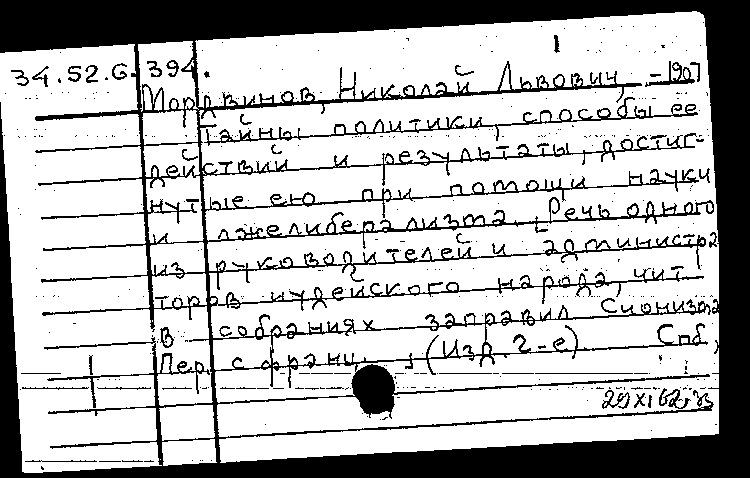 34.52.6.394.
Мордвинов, Николай Львович, -1907
Тайны политики, способы ее
действий и результаты, достиг-
нутые ею при помощи науки
и лжелиберализма. [Речь одного
из руководителей и администра
торов иудейского народа, чит.
в собраниях заправил Сионизма
Пер. с франц. ] (Изд. 2-е) Спб,